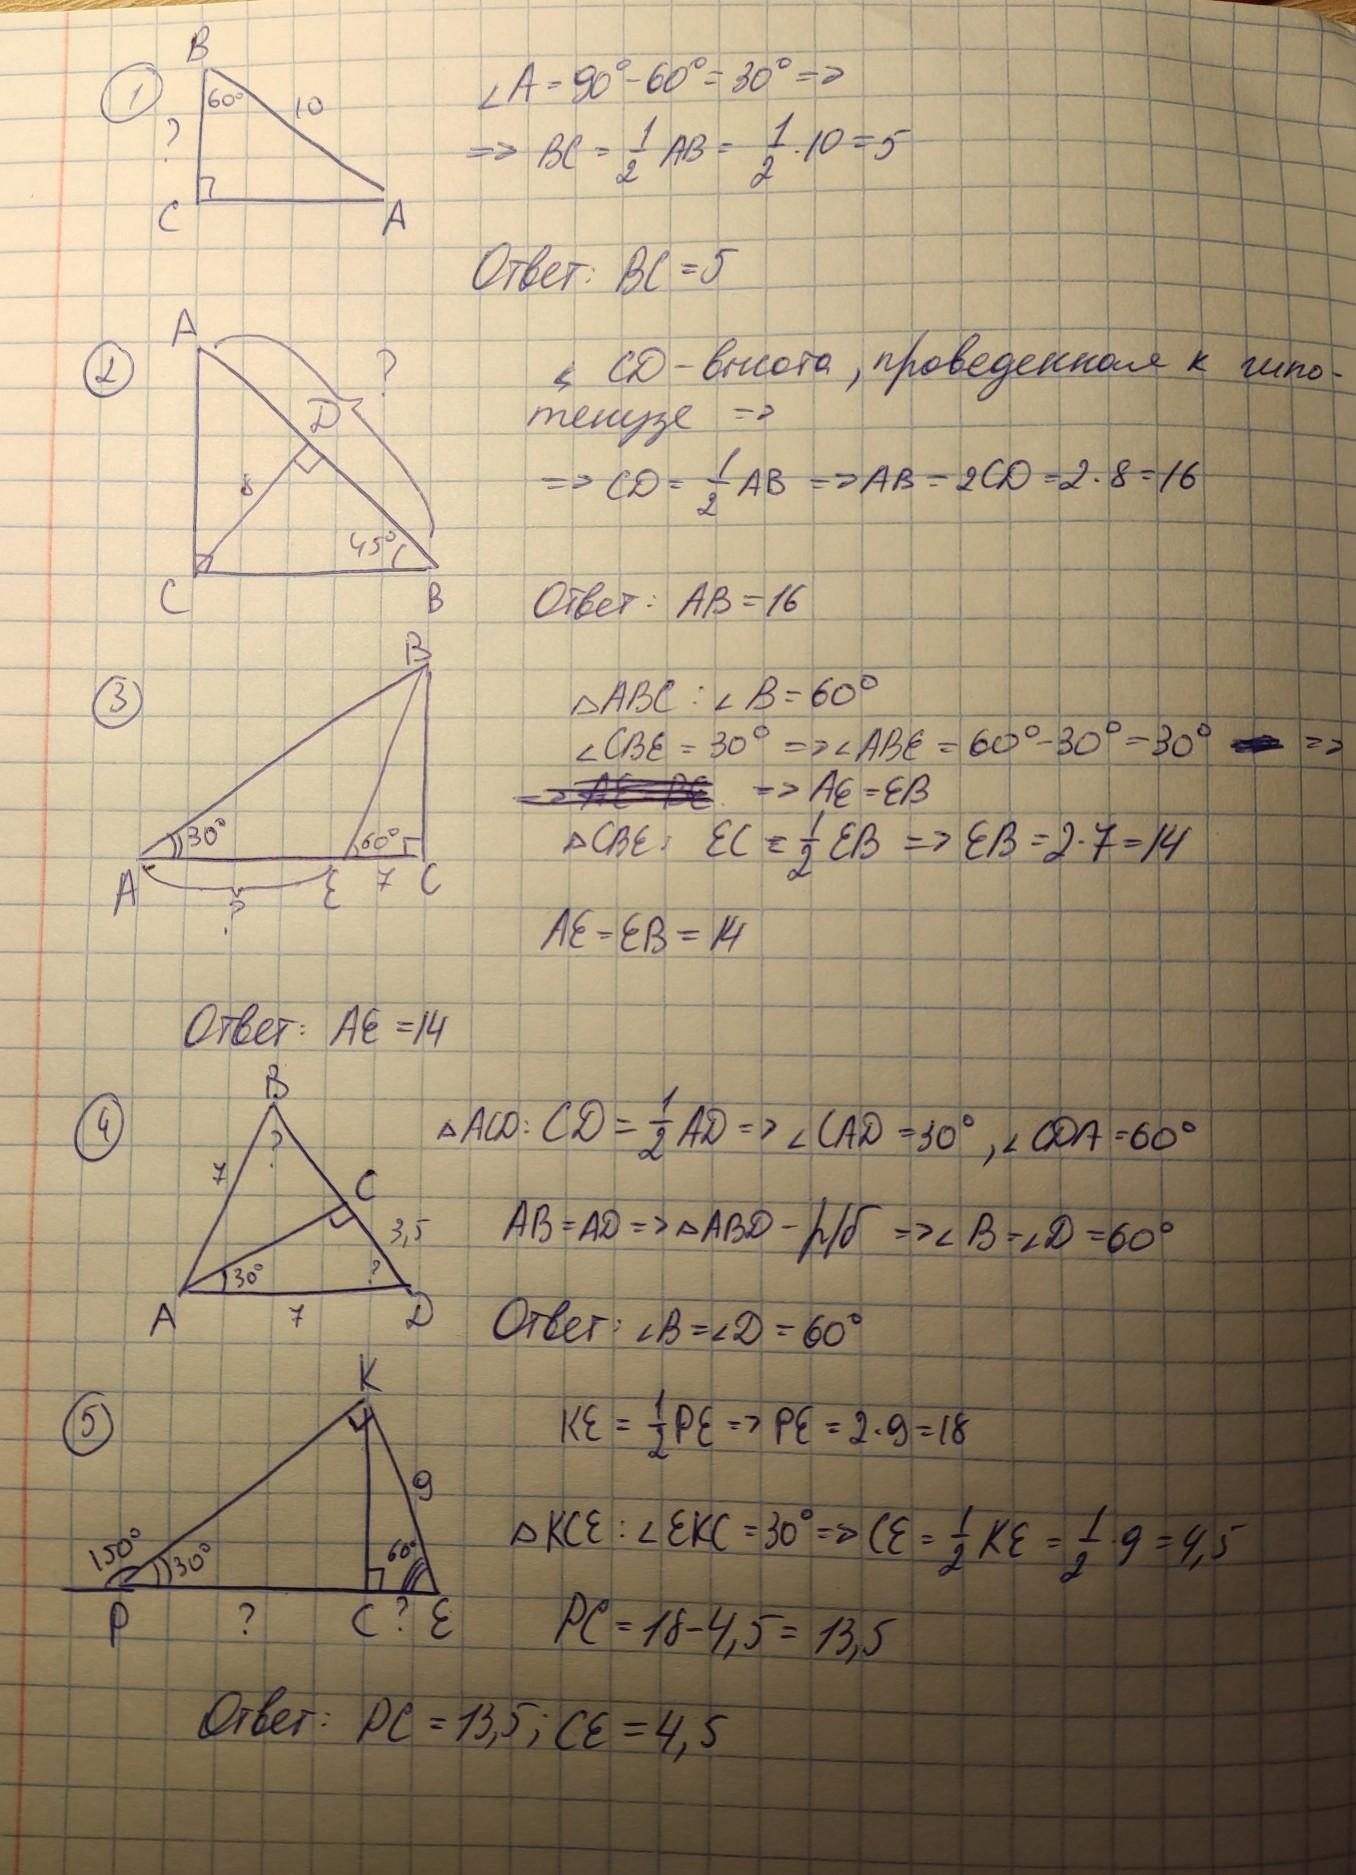 1
B
60°
10
?
C
A
∠A = 90° - 60° = 30° =>
=> BC = 1/2 AB = 1/2 · 10 = 5
Ответ: BC = 5
2
A
?
D
8
45°
C
B
CD - высота, проведенная к гипо-
тенузе =>
=> CD = 1/2 AB => AB = 2CD = 2 · 8 = 16
Ответ: AB = 16
3
B
30°
60°
A
E
7
C
?
△ABC: ∠B = 60°
∠CBE = 30° => ∠ABE = 60° - 30° = 30° =>
=> AE = EB
△CBE: EC = 1/2 EB => EB = 2 · 7 = 14
AE = EB = 14
Ответ: AE = 14
4
B
?
7
C
3,5
30°
?
A
7
D
△ACD: CD = 1/2 AD => ∠CAD = 30°, ∠CDA = 60°
AB = AD => △ABD - р/б => ∠B = ∠D = 60°
Ответ: ∠B = ∠D = 60°
5
K
9
150°
30°
60°
P
?
C
?
E
KE = 1/2 PE => PE = 2 · 9 = 18
△KCE: ∠EKC = 30° => CE = 1/2 KE = 1/2 · 9 = 4,5
PC = 18 - 4,5 = 13,5
Ответ: PC = 13,5; CE = 4,5